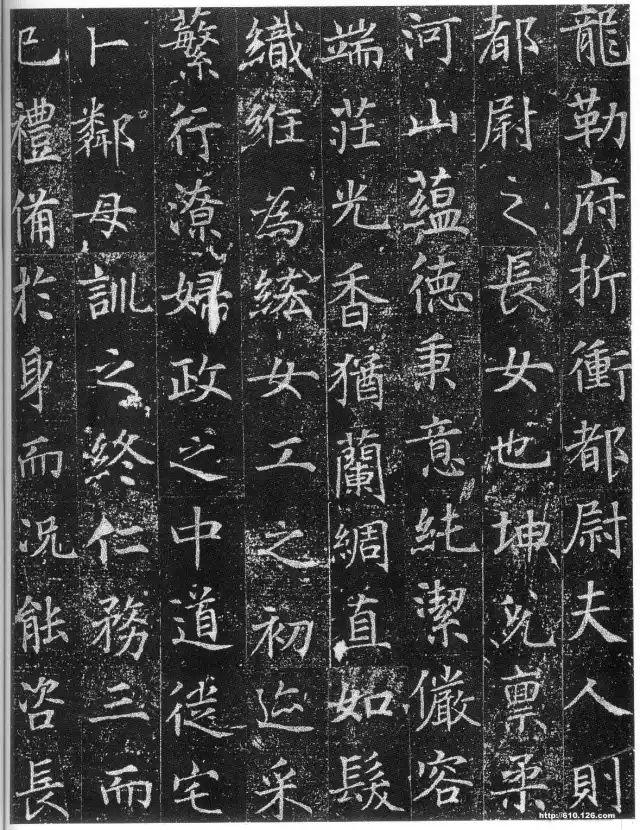 龍勒府折衝都尉夫人則
都尉之長女也坤皃禀柔
河山蘊德秉意純潔儼容
端莊光香猶蘭綢直如髮
織紝為綋女工之初迹采
蘩行潦婦政之中道徙宅
卜鄰母訓之終仁務三而
已禮備於身而況能咨長
http://610.126.com